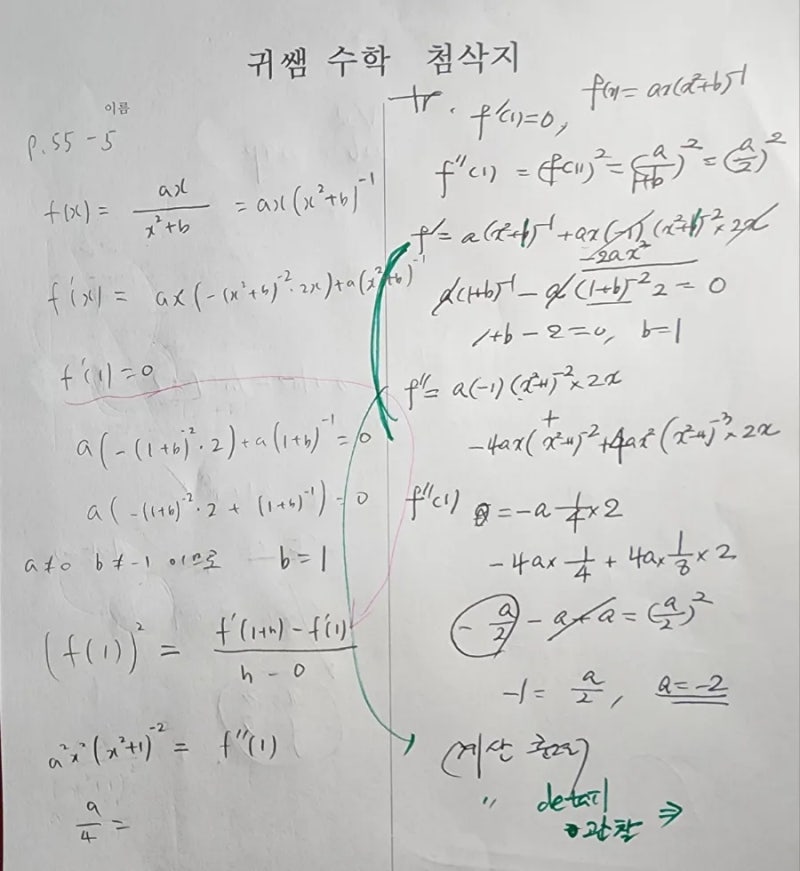 귀쌤 수학 첨삭지
이름
p.55 - 5
f(x) = ax / (x²+b) = ax(x²+b)⁻¹
f'(x) = ax(-(x²+b)⁻²·2x)+a(x²+b)⁻¹
f'(1)=0
a(-(1+b)⁻²·2)+a(1+b)⁻¹=0
a(-(1+b)⁻²·2 + (1+b)⁻¹) = 0
a≠0 b≠-1 이므로 b=1
(f(1))² = (f'(1+h) - f'(1)) / (h - 0)
a²x²(x²+1)⁻² = f''(1)
a/4 =
tr. f'(1)=0, f(x)= ax(x²+b)⁻¹
f''(1) = (f(1))² = (a/(1+b))² = (a/2)²
f' = a(x²+b)⁻¹+ax(-1)(x²+b)⁻²×2x
-2ax²
a(1+b)⁻¹ - a(1+b)⁻²2 = 0
1+b-2=0, b=1
f''= a(-1)(x²+1)⁻²×2x
-4ax(x²+1)⁻²+4ax²(x²+1)⁻³×2x
f''(1) = -a 1/4×2
-4a×1/4 + 4a×1/8×2
-a/2 - a + a = (a/2)²
-1 = a/2, a=-2
(계산
" detail
관찰 ⇒